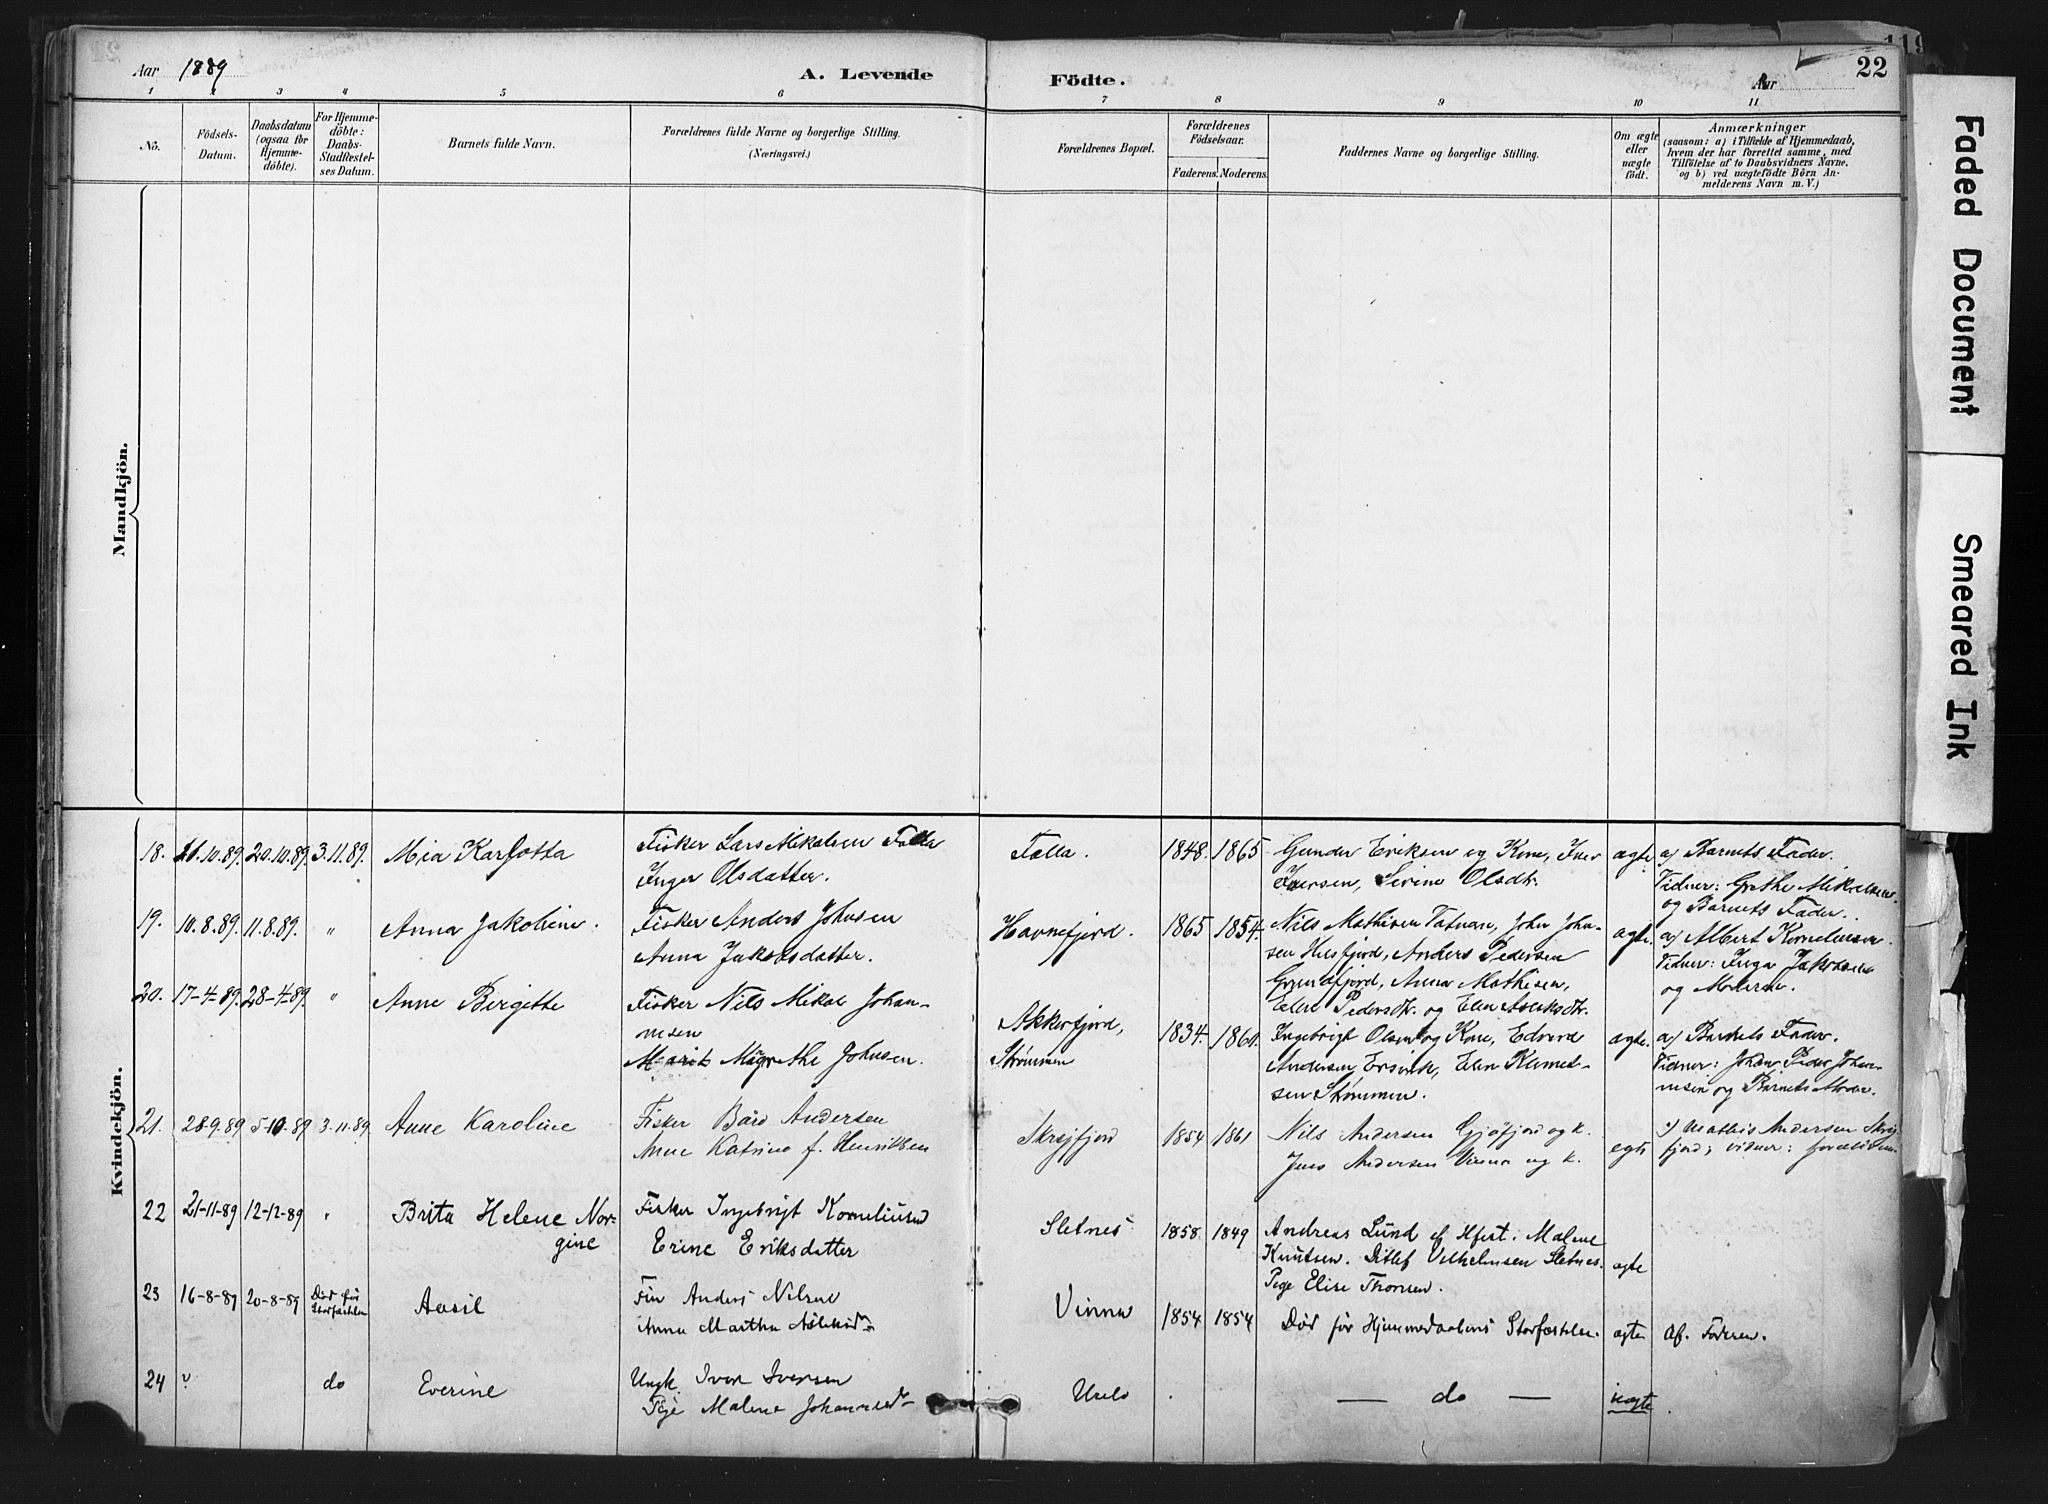 Aar 1889 A. Levende Födte. Aar 22
119
1 2 3 4 5 6 7 8 9 10 11
Nò. Födsels-Datum. Daabsdatum (ogsaa for Hjemme-döbte). For Hjemme-döbte: Daabs-Stadfæstel-ses Datum. Barnets fulde Navn. Forældrenes fulde Navne og borgerlige Stilling. (Næringsvei.) Forældrenes Bopæl. Forældrenes Födselsaar. Faderens. Moderens. Faddernes Navne og borgerlige Stilling. Om ægte eller uægte födt. Anmærkninger (saasom: a) i Tilfælde af Hjemmedaab, hvem der har forrettet samme, med Tilföielse af to Daabsvidners Navne, og b) ved uægtefödte Börn An-melderens Navn m. V.)
Mandkjön.
Kvindekjön.
18. 10.89. 20.10.89. 3.11.89. Mia Karlotta Fisker Lars Mikalsen Talla Talla. 1848. 1865 Gunder Eriksen og Kone, Iver ægte. a/ Barnets Fader.
Inger Olsdatter. Iversen, Serine Olsdtr. Vidner: Grethe Mikalsen
og Barnets Fader.
19. 10.8.89. 11.8.89. " Anna Jakobine. Fisker Anders Johnsen Havnefjord. 1865 1854. Nils Mathisen, John John- ægte. a/ Albert Kornelius
Anna Jakobsdatter. sen, Anders Pedersen Vidner: Inga Jakobsen
Anna Mathisen, og Moderen.
Elen Pedersdtr. og Elen
20. 17-4-89. 28-4-89. " Anne Birgitte Fisker Nils Mikal Johan- Akkarfjord, 1834. 1861. Ingebrigt Olsen og Kone, Edvard ægte. a/ Barnets Fader.
nesen Strømmen Andersen, Elen Klemet- Vidner: Johan Peder Johan-
Marit Magrethe Johnsen. sen Strømmen. nesen og Barnets Moder.
21. 28-9-89 5-10-89 3.11.89. Anne Karoline Fisker Baro Andersen Skreifjord 1854 1861 Nils Andersen og k. egte Mathis Andersen Skrei-
Anne Katrine f. Henriksen Jens Andersen Vinna og k. fjord; vidner: forældrene
22 21-11-89 12-12-89 " Brita Helene Nor- Fisker Ingebrigt Korneliused Sletnes 1858 1849 Andreas Lund af Hfest. Malene
gine Erine Eriksdatter Knutsen. Ditlef Vilhelmsen Sletnes. ægte
Pige Elise Thomsen.
23 16-8-89 20-8-89 Død før Stadfæstelse Aasil Fin Anders Nilsen Vinna 1854 1854 Død før Hjemmedaabens Stadfæstelse. ægte Af. Faderen.
Anna Martha
24 " do Everine Ungk. Iver Iversen — do — uægte
Pige Malene Johannesd.
Faded Document
Smeared Ink